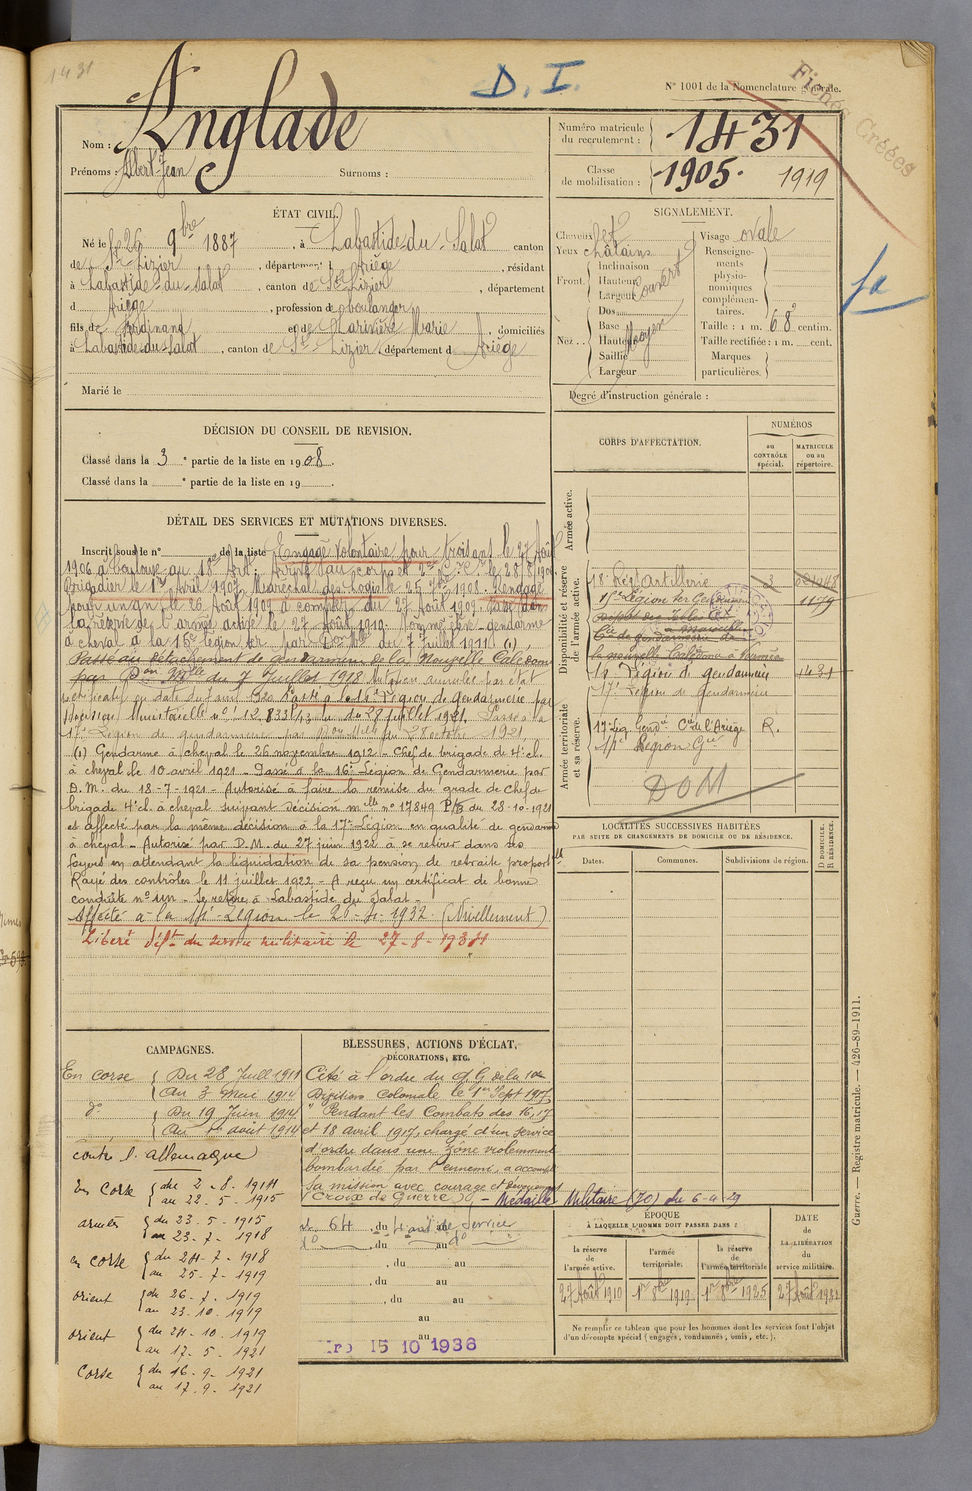 1431
D. I.
N° 1001 de la Nomenclature générale.
Fiches Créées
Nom : Anglade
Prénoms : Albert Jean Surnoms :
Numéro matricule du recrutement : 1431
Classe de mobilisation : 1905. 1919
ÉTAT CIVIL.
Né le 26 9bre 1887, à Labastide-du-Salat canton
de St Lizier, département Ariège, résidant
à Labastide-du-Salat, canton de St Lizier, département
d Ariège, profession de boulanger
fils de Ferdinand et de Larivière Marie, domiciliés
à Labastide-du-Salat, canton de St Lizier, département d Ariège
Marié le
SIGNALEMENT.
Cheveux
Yeux châtains
Front. Inclinaison
Hauteur
Largeur
Couvert
Nez. Dos
Base
Hauteur
Saillie
Largeur
Moyen
Visage ovale
Renseignements physionomiques complémentaires.
Taille : 1 m. 68 centim.
Taille rectifiée : 1 m. cent.
Marques particulières.
Degré d'instruction générale :
DÉCISION DU CONSEIL DE REVISION.
Classé dans la 3e partie de la liste en 1908.
Classé dans la e partie de la liste en 19
DÉTAIL DES SERVICES ET MUTATIONS DIVERSES.
Inscrit sous le n° de la liste Engagé volontaire pour trois ans le 27 Août
1906 à Toulouse au 18e Art. Arrivé au corps et 2e C. C. le 28/8/1906
Brigadier le 1er Avril 1907. Maréchal des Logis le 25 7bre 1908. Rengagé
pour un an le 26 Août 1909 à compter du 27 Août 1909. Passé dans
la réserve de l'armée active le 27 Août 1910. Nommé élève-gendarme
à cheval à la 15e légion ter par Don Mlle du 7 Juillet 1911 (1).
Passé au détachement de gendarmerie de la Nouvelle Calédonie
par Don Mlle du 7 Juillet 1918 Mutation annulée par état
Passé à la 14e Légion de Gendarmerie par
décision Ministérielle n° 12.833 1/3 du 28 juillet 1921. Passé à la
17e Légion de gendarmerie par Don Mlle du 28 octobre 1921.
(1) Gendarme à cheval le 26 novembre 1912 - Chef de brigade de 4e cl.
à cheval le 10 avril 1921 - Passé à la 16e Légion de Gendarmerie par
D. M. du 18-7-1921 - Autorisé à faire la remise du grade de Chef de
brigade 4e cl. à cheval suivant décision mlle n° 17849 P/G du 28-10-1921
et affecté par la même décision à la 17e Légion en qualité de gendarme
à cheval - Autorisé par D. M. du 27 juin 1922 à se retirer dans ses
foyers en attendant la liquidation de sa pension de retraite proportlle
Rayé des contrôles le 11 juillet 1922 - A reçu un certificat de bonne
conduite n° un - Se retire à Labastide du Salat -
Affecté à la 17e Légion le 20-4-1932. (Nivellement)
Libéré défnt du service militaire le 27-8-1934
CORPS D'AFFECTATION.
NUMÉROS
au CONTRÔLE spécial.
MATRICULE ou au répertoire.
Armée active.
Disponibilité et réserve de l'armée active.
18e Régt Artillerie 3
15e Légion ter Gendarmerie 1179
Cie de gendarmerie de
la nouvelle Calédonie à Nouméa
Légion de gendarmerie 1431
17e Légion de gendarmerie
Armée territoriale et sa réserve.
17e Lég. Gendie Cie de l'Ariège R.
17e Légion Gie
DOM
LOCALITÉS SUCCESSIVES HABITÉES
PAR SUITE DE CHANGEMENTS DE DOMICILE OU DE RÉSIDENCE.
Dates. Communes. Subdivisions de région.
D DOMICILE. R RÉSIDENCE.
CAMPAGNES.
En corse { Du 28 Juill 1911
Au 3 Mai 1914
d° { Du 19 Juin 1914
Au 1er août 1914
contre l'allemagne
En Corse { du 2-8-1914
au 22-5-1915
armées { du 23-5-1915
au 23-7-1918
en corse { du 24-7-1918
au 25-7-1919
orient { du 26-7-1919
au 23-10-1919
orient { du 24-10-1919
au 17-5-1921
Corse { du 16-9-1921
au 17-9-1921
BLESSURES, ACTIONS D'ÉCLAT,
DÉCORATIONS, ETC.
Cité à l'ordre du A G de la 10e
Division Coloniale le 1er Sept 1917
" Pendant les Combats des 16, 17
et 18 avril 1917, chargé d'un service
d'ordre dans une zône violemment
bombardée par l'ennemi, a accompli
sa mission avec courage et dévouement
(Croix de Guerre) - Médaille Militaire (JO) du 6-4-29
, du au
, du au
, du au
, du au
au
au
15 10 1938
ÉPOQUE
À LAQUELLE L'HOMME DOIT PASSER DANS :
la réserve de l'armée active.
l'armée territoriale.
la réserve de l'armée territoriale
DATE de LA LIBÉRATION du service militaire.
27 Août 1910 1er 8bre 1919 1er 8bre 1925 27 Août 1932
Ne remplir ce tableau que pour les hommes dont les services font l'objet
d'un décompte spécial (engagés, condamnés, omis, etc.).
Guerre. — Registre matricule. — 426-89-1911.